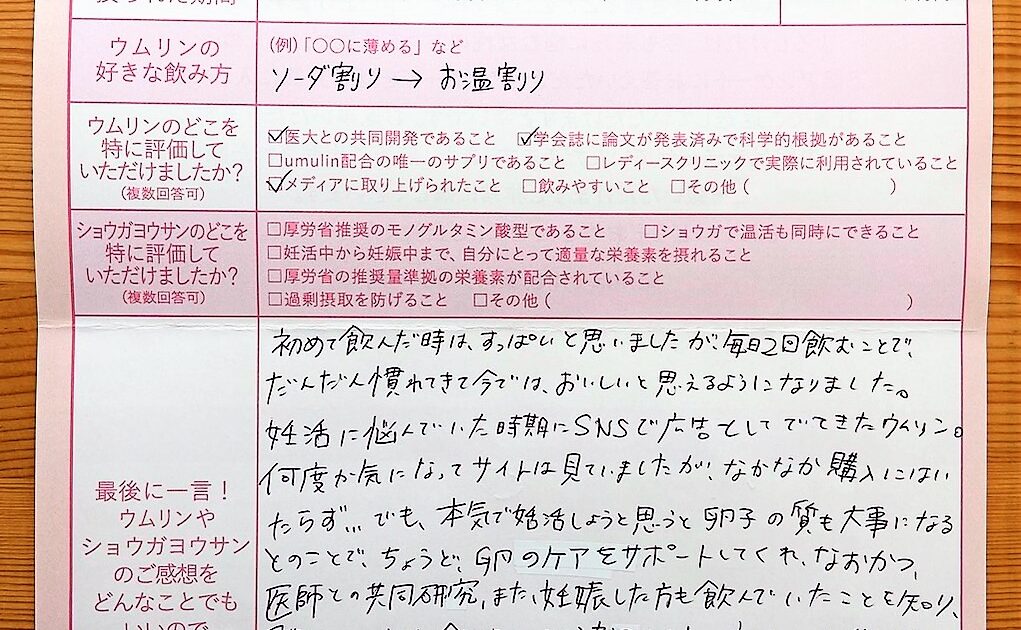 ウムリンの
好きな飲み方
(例)「〇〇に薄める」など
ソーダ割り → お温割り
ウムリンのどこを
特に評価して
いただけましたか?
(複数回答可)
☑医大との共同開発であること ☑学会誌に論文が発表済みで科学的根拠があること
□umulin配合の唯一のサプリであること □レディースクリニックで実際に利用されていること
☑メディアに取り上げられたこと □飲みやすいこと □その他( )
ショウガヨウサンのどこを
特に評価して
いただけましたか?
(複数回答可)
□厚労省推奨のモノグルタミン酸型であること □ショウガで温活も同時にできること
□妊活中から妊娠中まで、自分にとって適量な栄養素を摂れること
□厚労省の推奨量準拠の栄養素が配合されていること
□過剰摂取を防げること □その他( )
最後に一言!
ウムリンや
ショウガヨウサン
のご感想を
どんなことでも
いいので
初めて飲んだ時は、すっぱいと思いましたが、毎日2回飲むことで、
だんだん慣れてきて今では、おいしいと思えるようになりました。
妊活に悩んでいた時期にSNSで広告としてでてきたウムリン。
何度か気になってサイトは見ていましたが、なかなか購入にはい
たらず… でも、本気で妊活しようと思うと卵子の質も大事になる
とのことで、ちょうど、卵のケアをサポートしてくれ、なおかつ、
医師との共同研究、また、妊娠した方も飲んでいたことを知り、